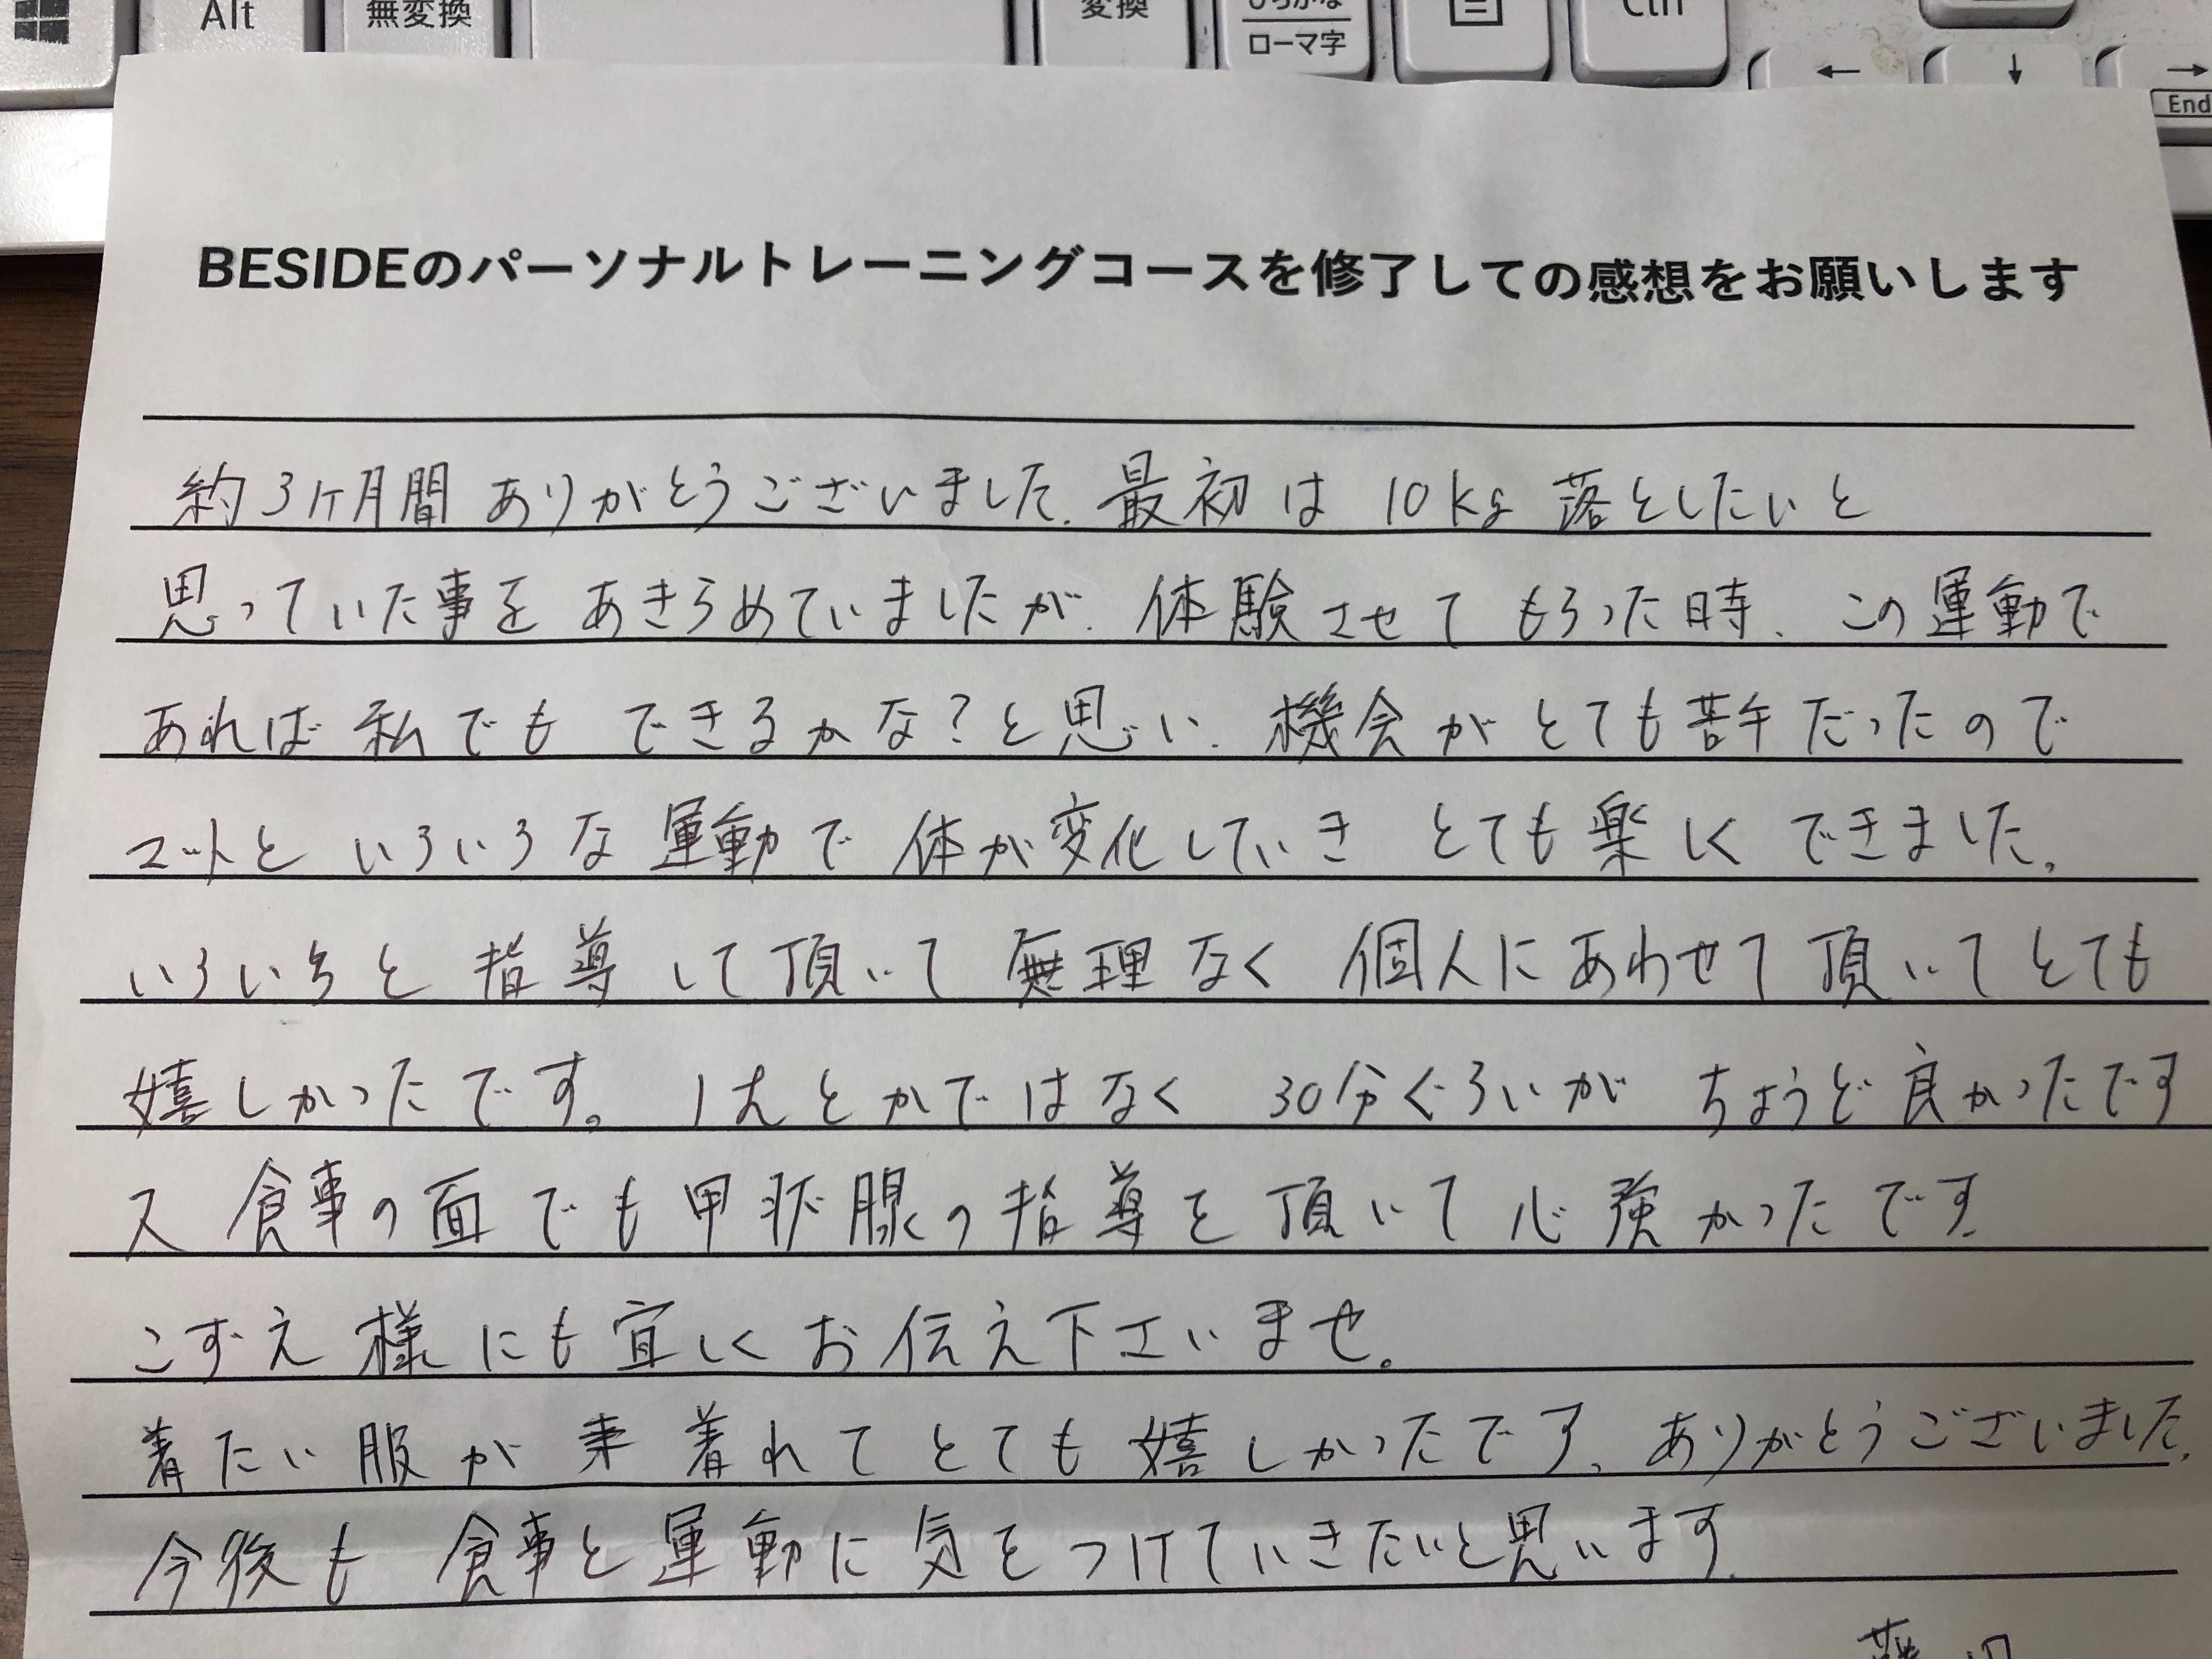 Alt
無変換
変換
ローマ字
Ctrl
End
BESIDEのパーソナルトレーニングコースを修了しての感想をお願いします
約3ヶ月間 ありがとうございました。最初は 10kg 落としたいと
思っていた事を あきらめていましたが、体験させて もらった時、この運動で
あれば 私でも できるかな?と思い、機会がとても苦手だったので
マットと いろいろな 運動で 体が変化していき とても楽しく できました。
いろいろと 指導して頂いて 無理なく 個人にあわせて頂いてとても
嬉しかったです。 1hとかではなく 30分ぐらいが ちょうど良かったです
又 食事の面でも甲状腺の指導を頂いて心強かったです。
こずえ様にも宜しくお伝え下さいませ。
着たい服が 着れてとても嬉しかったです、ありがとうございました。
今後も 食事と運動に気をつけていきたいと思います。